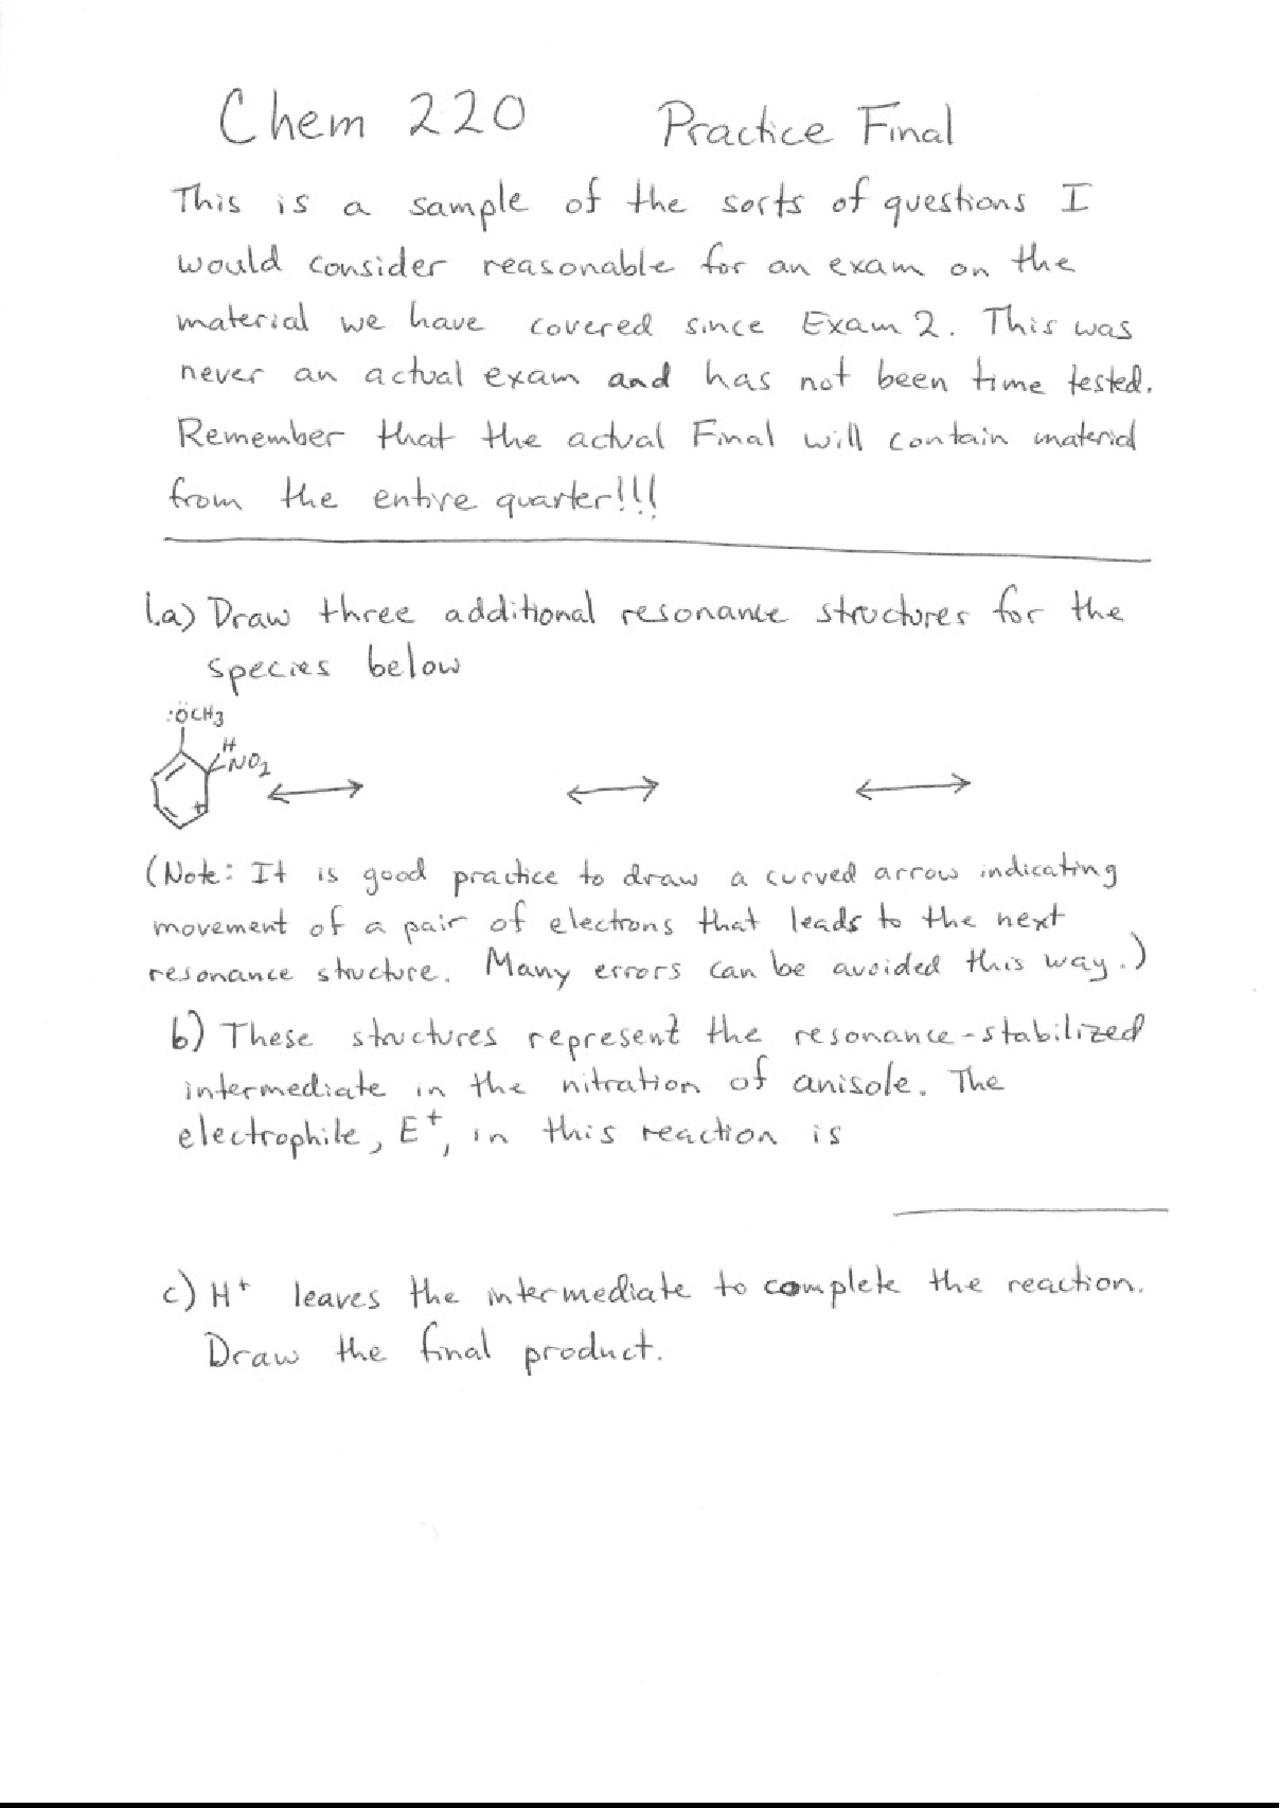 Chem 220 Practice Final
This is a sample of the sorts of questions I
would consider reasonable for an exam on the
material we have covered since Exam 2. This was
never an actual exam and has not been time tested.
Remember that the actual Final will contain material
from the entire quarter!!!
1.a) Draw three additional resonance structures for the
species below
:ÖCH3
H
NO2
+
(Note: It is good practice to draw a curved arrow indicating
movement of a pair of electrons that leads to the next
resonance structure. Many errors can be avoided this way.)
b) These structures represent the resonance-stabilized
intermediate in the nitration of anisole. The
electrophile, E+, in this reaction is
c) H+ leaves the intermediate to complete the reaction.
Draw the final product.